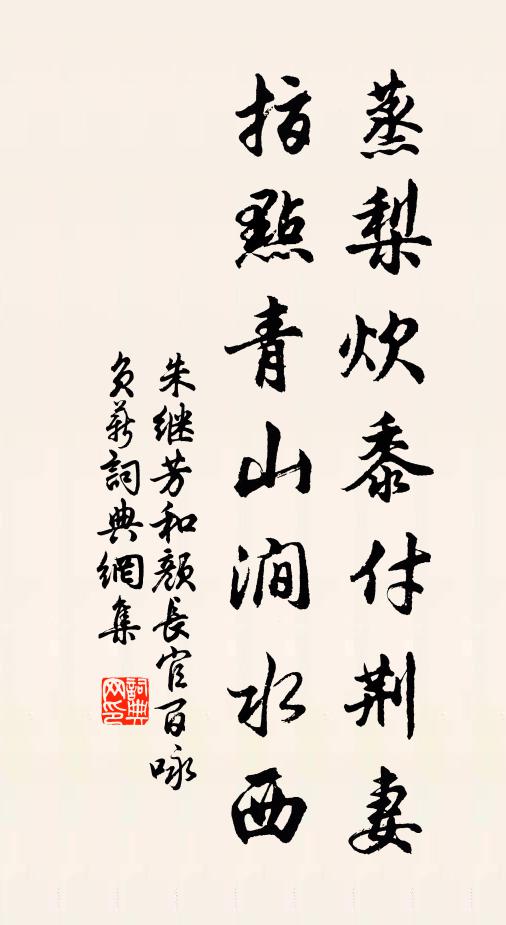 蒸梨炊黍付荆妻
指點青山澗水西
朱继芳和顏長官百咏
負薪詞典網集
詞典网印